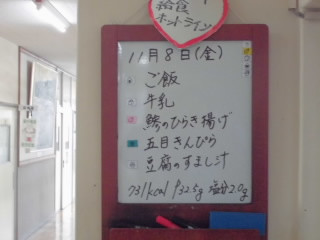 給食
ホットライン
11月8日(金)
ご飯
牛乳
鯵のひらき揚げ
五目きんぴら
豆腐のすまし汁
731kcal P32.5g 塩分2.0g